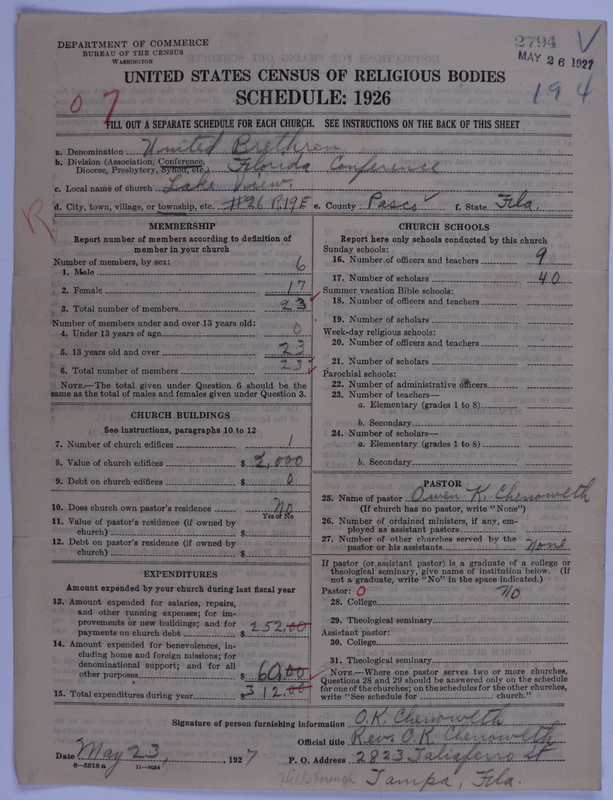 DEPARTMENT OF COMMERCE
BUREAU OF THE CENSUS
WASHINGTON
2794
MAY 26 1927
194
UNITED STATES CENSUS OF RELIGIOUS BODIES
SCHEDULE: 1926
07
FILL OUT A SEPARATE SCHEDULE FOR EACH CHURCH. SEE INSTRUCTIONS ON THE BACK OF THIS SHEET
a. Denomination United Brethren
b. Division (Association, Conference, Diocese, Presbytery, Synod, etc.) Florida Conference
c. Local name of church Lake View.
d. City, town, village, or township, etc. #26 R.19E e. County: Pasco f. State Fla.
R
MEMBERSHIP
Report number of members according to definition of
member in your church
Number of members, by sex:
1. Male 6
2. Female 17
3. Total number of members 23
Number of members under and over 13 years old:
4. Under 13 years of age 0
5. 13 years old and over 23
6. Total number of members 23
NOTE.—The total given under Question 6 should be the
same as the total of males and females given under Question 3.
CHURCH BUILDINGS
See instructions, paragraphs 10 to 12
7. Number of church edifices 1
8. Value of church edifices $ 2,000
9. Debt on church edifices $ 0
10. Does church own pastor's residence No
Yes or No
11. Value of pastor's residence (if owned by
church) $
12. Debt on pastor's residence (if owned by
church) $
EXPENDITURES
Amount expended by your church during last fiscal year
13. Amount expended for salaries, repairs,
and other running expenses; for im-
provements or new buildings; and for
payments on church debt $ 252.00
14. Amount expended for benevolences, in-
cluding home and foreign missions; for
denominational support; and for all
other purposes $ 60.00
15. Total expenditures during year $ 312.00
CHURCH SCHOOLS
Report here only schools conducted by this church
Sunday schools:
16. Number of officers and teachers 9
17. Number of scholars 40
Summer vacation Bible schools:
18. Number of officers and teachers
19. Number of scholars
Week-day religious schools:
20. Number of officers and teachers
21. Number of scholars
Parochial schools:
22. Number of administrative officers
23. Number of teachers—
a. Elementary (grades 1 to 8)
b. Secondary
24. Number of scholars—
a. Elementary (grades 1 to 8)
b. Secondary
PASTOR
25. Name of pastor Owen K. Chenoweth
(If church has no pastor, write "None")
26. Number of ordained ministers, if any, em-
ployed as assistant pastors
27. Number of other churches served by the
pastor or his assistants None
If pastor (or assistant pastor) is a graduate of a college or
theological seminary, give name of institution below. (If
not a graduate, write "No" in the space indicated.)
Pastor: 0 No
28. College
29. Theological seminary
Assistant pastor:
30. College
31. Theological seminary
NOTE.—Where one pastor serves two or more churches,
Questions 28 and 29 should be answered only on the schedule
for one of the churches; on the schedules for the other churches,
write "See schedule for church."
Signature of person furnishing information O.K. Chenoweth
Official title Rev. O.K. Chenoweth
Date May 23, 1927 P. O. Address 2823 Taliaferro St
8—5518a 11—9034
Hillsborough Tampa, Fla.